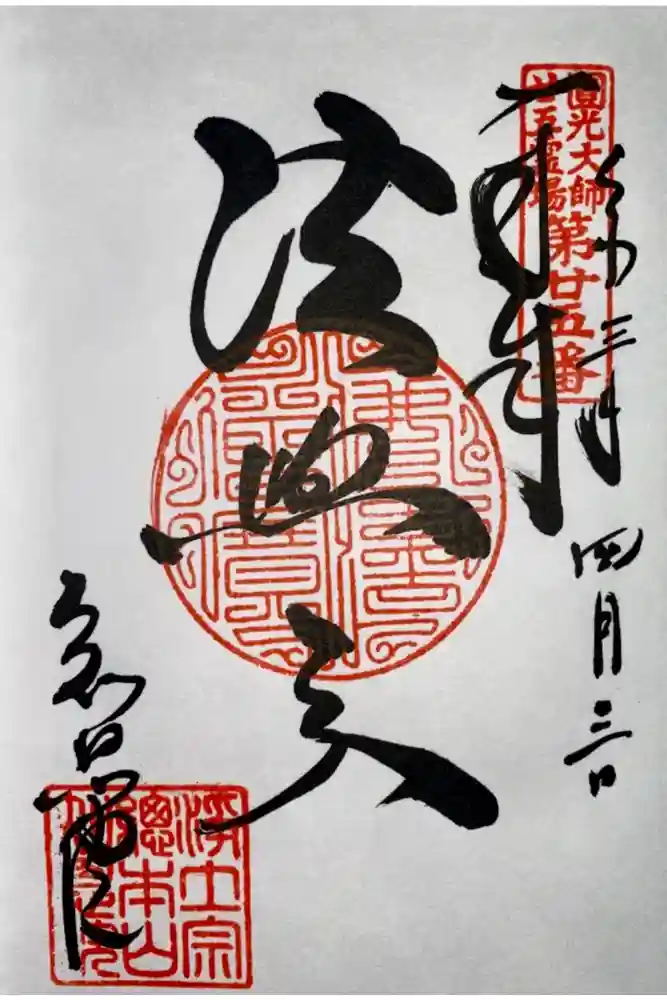 奉拝
圓光大師
廿五霊場
第廿五番
令和三年四月三日
法然上人
淨土宗
總本山
知恩院